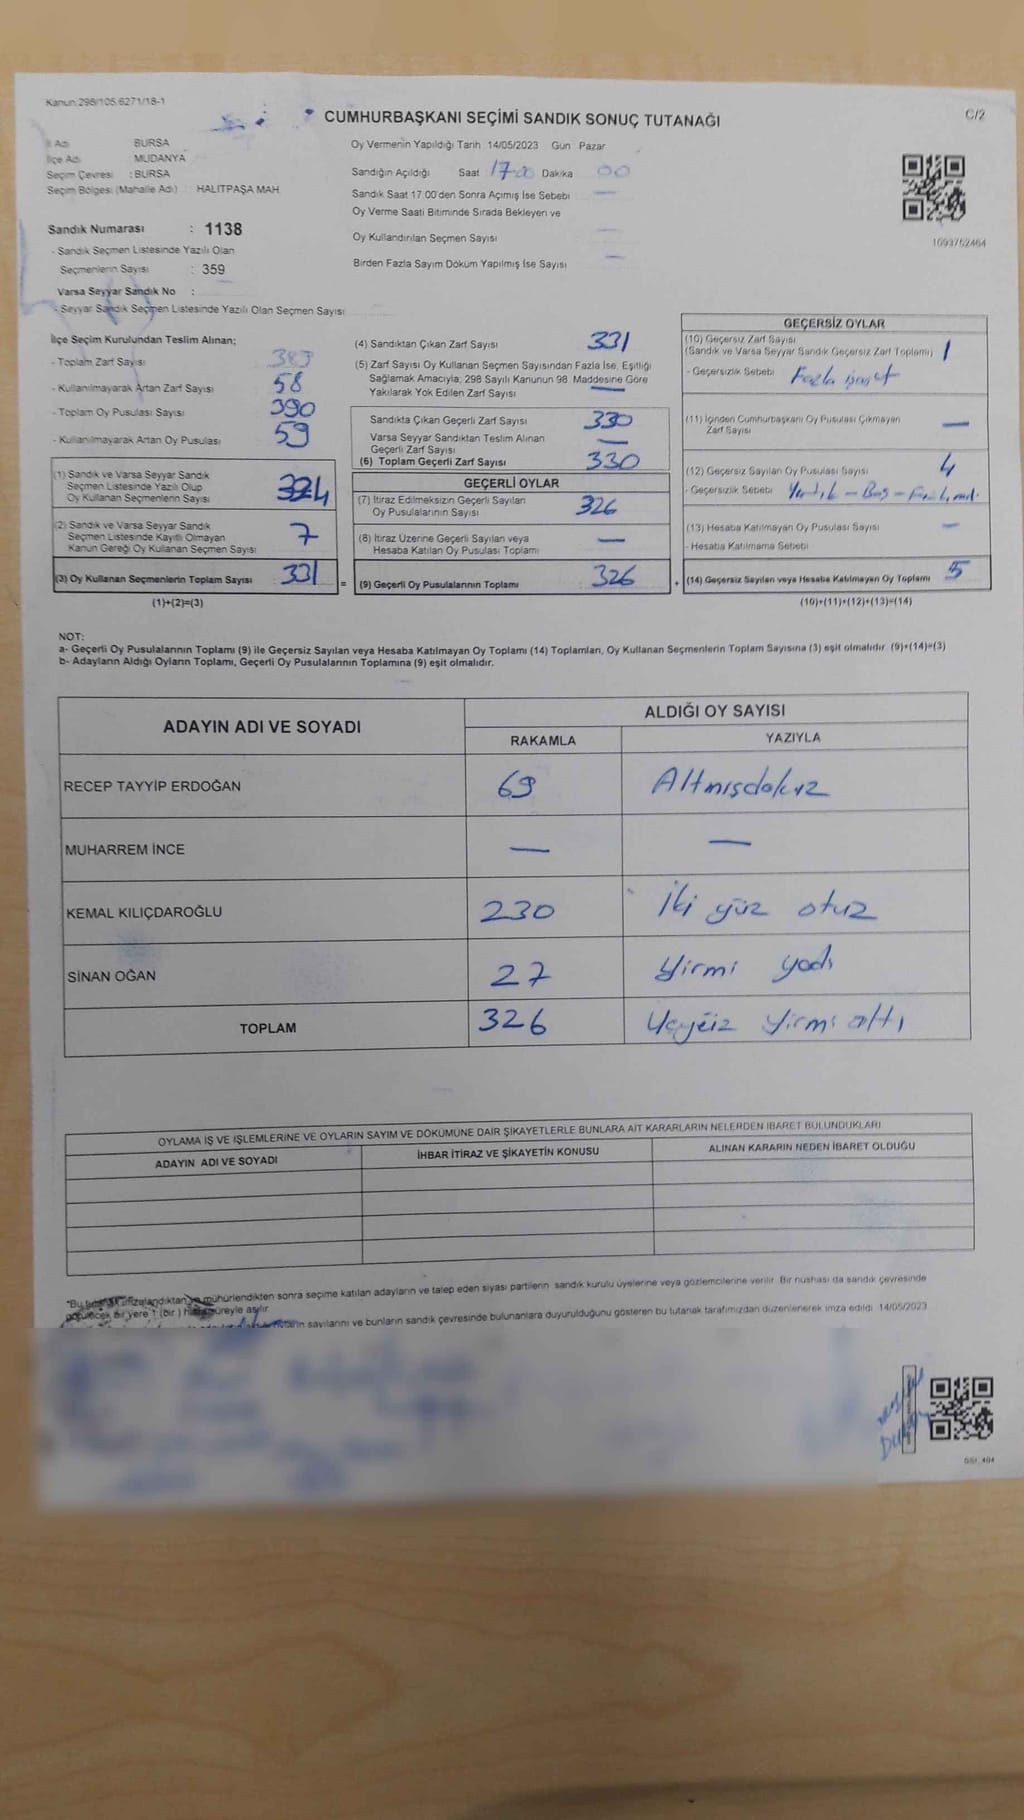 Kanun 298/105.6271/18-1
CUMHURBAŞKANI SEÇİMİ SANDIK SONUÇ TUTANAĞI
C/2
İl Adı BURSA
İlçe Adı MUDANYA
Seçim Çevresi : BURSA
Seçim Bölgesi (Mahalle Adı) : HALİTPAŞA MAH
Sandık Numarası : 1138
- Sandık Seçmen Listesinde Yazılı Olan
Seçmenlerin Sayısı : 359
Varsa Seyyar Sandık No :
- Seyyar Sandık Seçmen Listesinde Yazılı Olan Seçmen Sayısı
Oy Vermenin Yapıldığı Tarih 14/05/2023 Gün Pazar
Sandığın Açıldığı Saat 17:00 Dakika 00
Sandık Saat 17 00'den Sonra Açımış İse Sebebi —
Oy Verme Saati Bitiminde Sırada Bekleyen ve
Oy Kullandırılan Seçmen Sayısı —
Birden Fazla Sayım Döküm Yapılmış İse Sayısı —
1093762464
İlçe Seçim Kurulundan Teslim Alınan;
- Toplam Zarf Sayısı 389
- Kullanılmayarak Artan Zarf Sayısı 58
- Toplam Oy Pusulası Sayısı 390
- Kullanılmayarak Artan Oy Pusulası 59
(1) Sandık ve Varsa Seyyar Sandık
Seçmen Listesinde Yazılı Olup
Oy Kullanan Seçmenlerin Sayısı 324
(2) Sandık ve Varsa Seyyar Sandık
Seçmen Listesinde Kayıtlı Olmayan
Kanun Gereği Oy Kullanan Seçmen Sayısı 7
(3) Oy Kullanan Seçmenlerin Toplam Sayısı 331
(1)+(2)=(3)
(4) Sandıktan Çıkan Zarf Sayısı 331
(5) Zarf Sayısı Oy Kullanan Seçmen Sayısından Fazla İse, Eşitliği
Sağlamak Amacıyla, 298 Sayılı Kanunun 98 Maddesine Göre
Yakılarak Yok Edilen Zarf Sayısı —
Sandıkta Çıkan Geçerli Zarf Sayısı 330
Varsa Seyyar Sandıktan Teslim Alınan
Geçerli Zarf Sayısı —
(6) Toplam Geçerli Zarf Sayısı 330
GEÇERLİ OYLAR
(7) İtiraz Edilmeksizin Geçerli Sayılan
Oy Pusulalarının Sayısı 326
(8) İtiraz Üzerine Geçerli Sayılan veya
Hesaba Katılan Oy Pusulası Toplamı —
= (9) Geçerli Oy Pusulalarının Toplamı 326
GEÇERSİZ OYLAR
(10) Geçersiz Zarf Sayısı
(Sandık ve Varsa Seyyar Sandık Geçersiz Zarf Toplamı) 1
- Geçersizlik Sebebi Fazla işaret
(11) İçinden Cumhurbaşkanı Oy Pusulası Çıkmayan
Zarf Sayısı —
(12) Geçersiz Sayılan Oy Pusulası Sayısı 4
- Geçersizlik Sebebi Yırtık - Boş -
(13) Hesaba Katılmayan Oy Pusulası Sayısı —
- Hesaba Katılmama Sebebi
+ (14) Geçersiz Sayılan veya Hesaba Katılmayan Oy Toplamı 5
(10)+(11)+(12)+(13)=(14)
NOT:
a- Geçerli Oy Pusulalarının Toplamı (9) ile Geçersiz Sayılan veya Hesaba Katılmayan Oy Toplamı (14) Toplamları, Oy Kullanan Seçmenlerin Toplam Sayısına (3) eşit olmalıdır. (9)+(14)=(3)
b- Adayların Aldığı Oyların Toplamı, Geçerli Oy Pusulalarının Toplamına (9) eşit olmalıdır.
ADAYIN ADI VE SOYADI ALDIĞI OY SAYISI
RAKAMLA YAZIYLA
RECEP TAYYİP ERDOĞAN 69 Altmışdokuz
MUHARREM İNCE — —
KEMAL KILIÇDAROĞLU 230 İki yüz otuz
SİNAN OĞAN 27 Yirmi yedi
TOPLAM 326 Üçyüz Yirmi altı
OYLAMA İŞ VE İŞLEMLERİNE VE OYLARIN SAYIM VE DÖKÜMÜNE DAİR ŞİKAYETLERLE BUNLARA AİT KARARLARIN NELERDEN İBARET BULUNDUKLARI
ADAYIN ADI VE SOYADI İHBAR İTİRAZ VE ŞİKAYETİN KONUSU ALINAN KARARIN NEDEN İBARET OLDUĞU
"Bu mühürlendikten sonra seçime katılan adayların ve talep eden siyasi partilerin sandık kurulu üyelerine veya gözlemcilerine verilir. Bir nüshası da sandık çevresinde
bir yere 1 (bir) süreyle asılır.
sayılarını ve bunların sandık çevresinde bulunanlara duyurulduğunu gösteren bu tutanak tarafımızdan düzenlenerek imza edildi. 14/05/2023